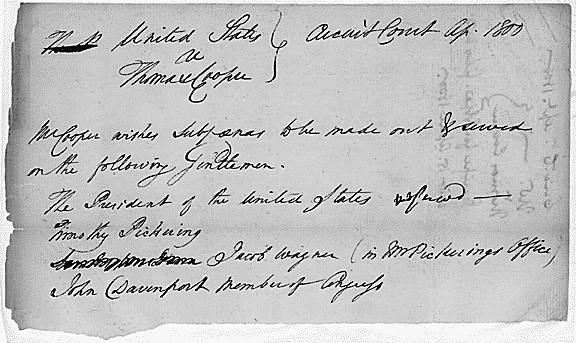 United States } Circuit Court Ap. 1800
v
Thomas Cooper
Mr Cooper wishes Subpœnas to be made out & served
on the following Gentlemen.
The President of the United States refused —
Timothy Pickering
Jacob Wagner (in Mr Pickerings Office)
John Davenport Member of Congress